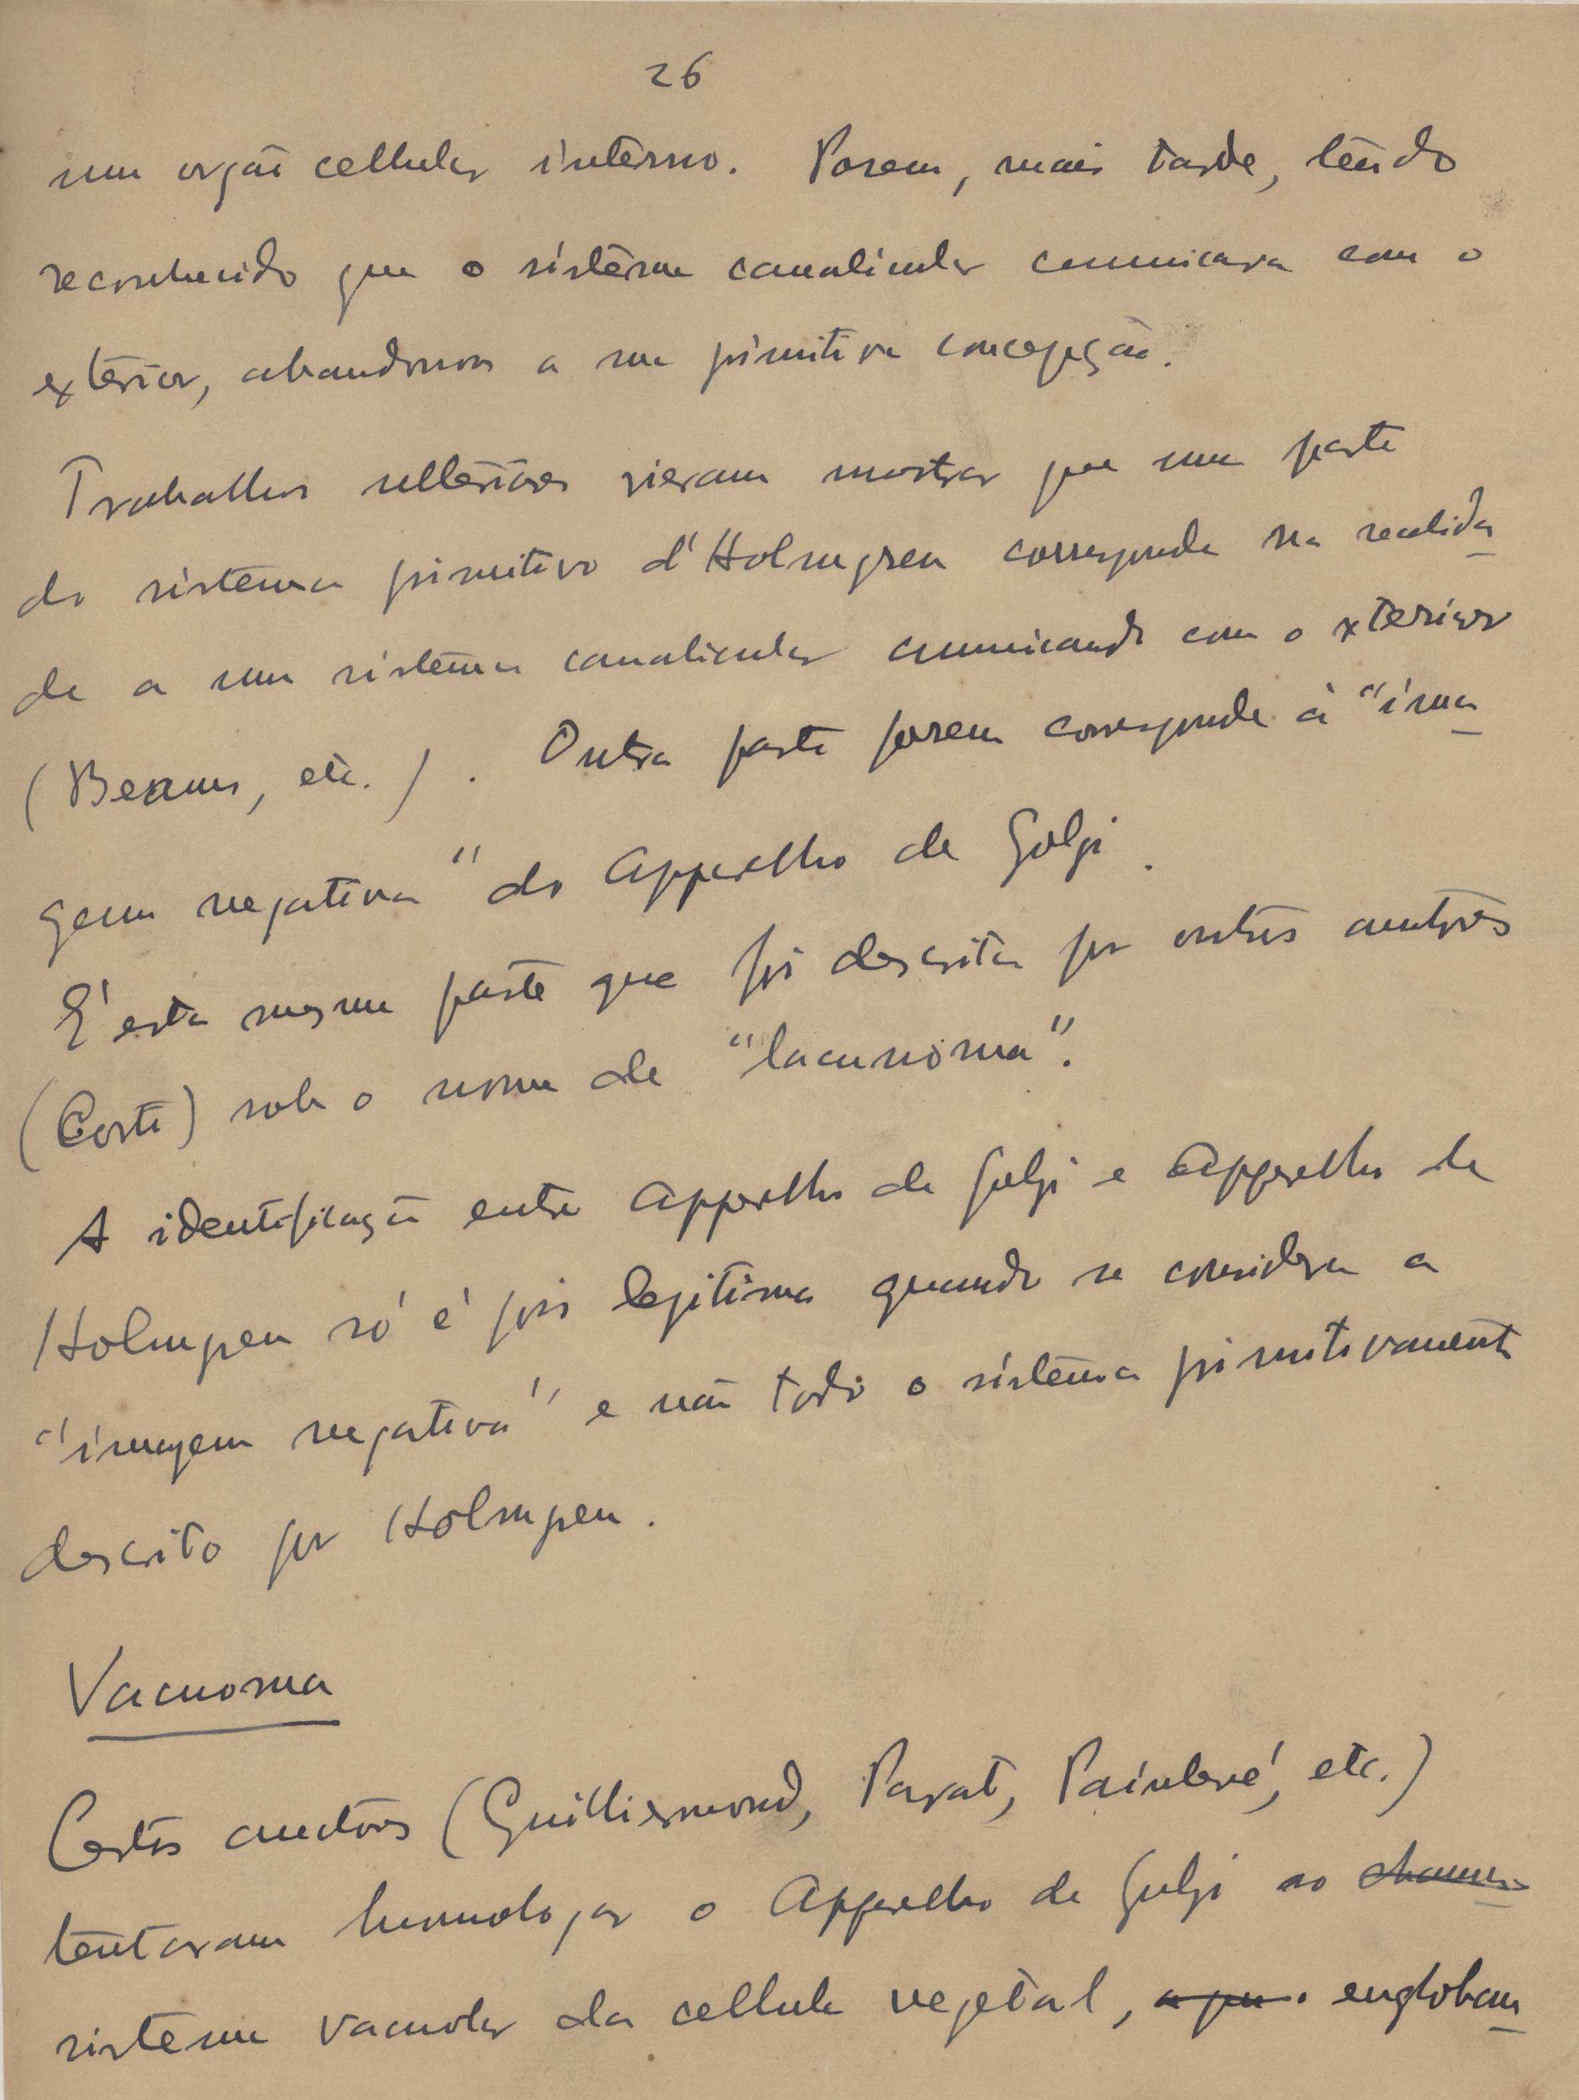 26
um orgão cellular interno. Porem, mais tarde, tendo
reconhecido que o sistema canalicular comunicava com o
exterior, abandonou a sua primitiva concepção.
Trabalhos ulteriores vieram mostrar que uma parte
do sistema primitivo d'Holmgren corresponde na realida
de a um sistema canalicular comunicando com o exterior
(Beams, etc.). Outra parte porem corresponde á "ima
gem negativa" do Apparelho de Golgi.
É esta mesma parte que foi descrita por outros auctores
(Corti) sob o nome de "lacunoma".
A identificação entre Apparelho de Golgi e Apparelho de
Holmgren só é pois legitima quando se considera a
"imagem negativa" e não todo o sistema primitivamente
descrito por Holmgren.
Vacuoma
Certos auctores (Guilliermond, Parat, Painlevé, etc.)
tentaram homologar o Apparelho de Golgi ao
sistema vacuolar da cellula vegetal, a que engloban